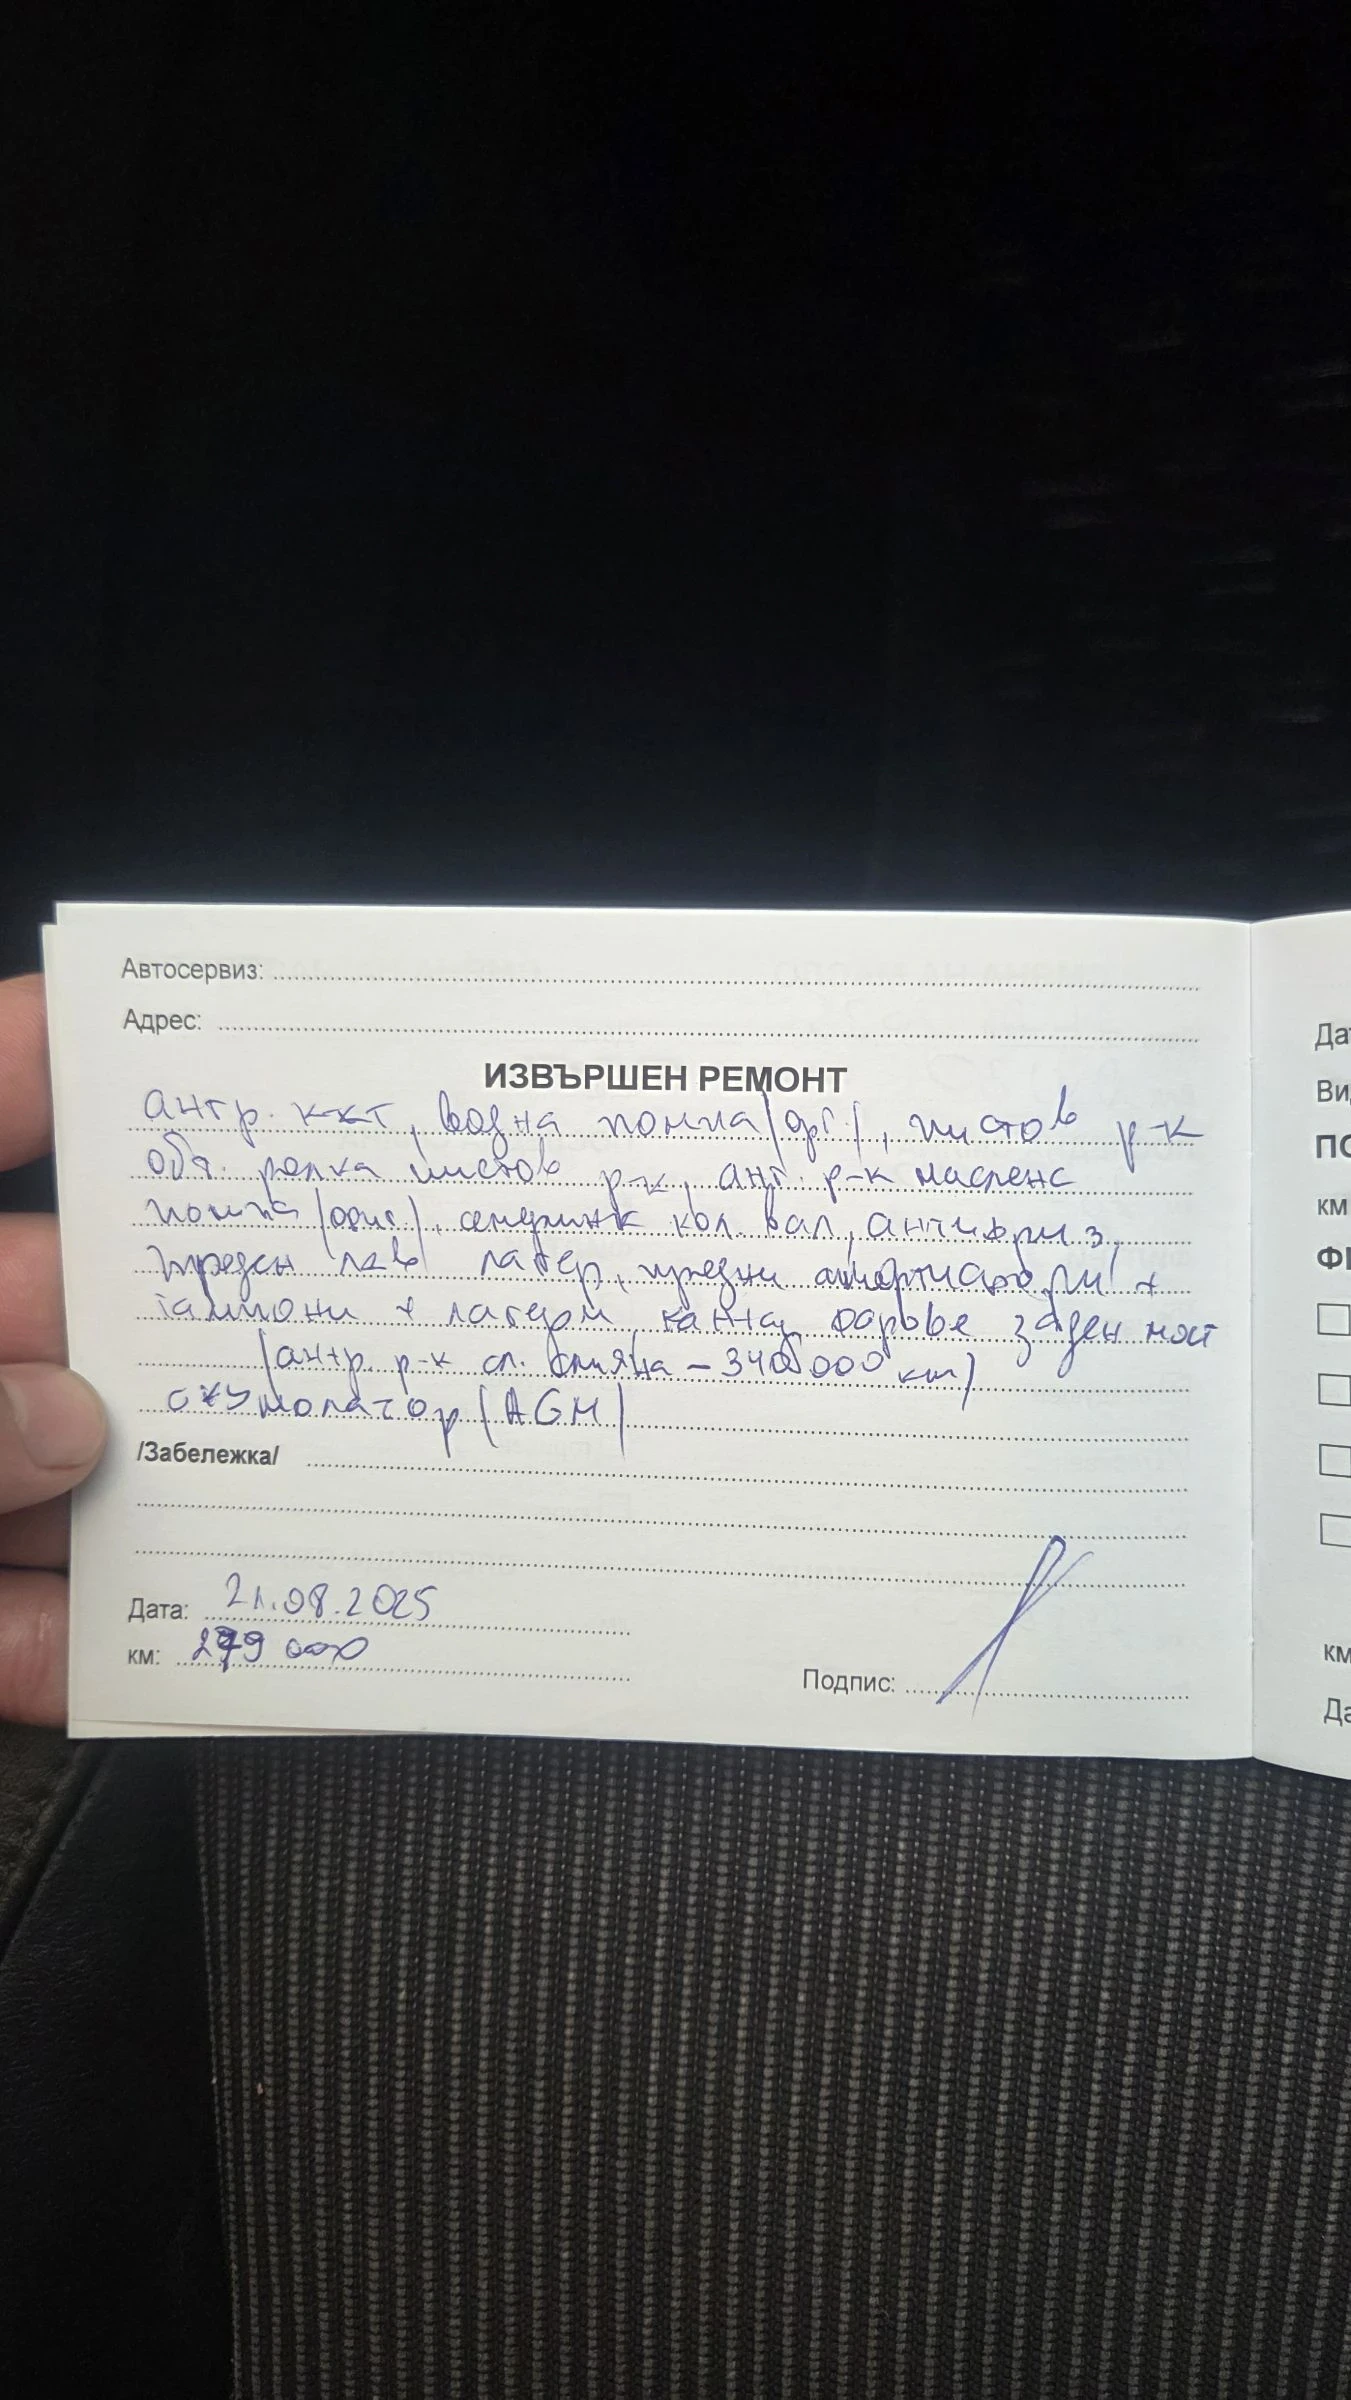 Автосервиз:
Адрес:
ИЗВЪРШЕН РЕМОНТ
ангр. к-кт, водна помпа /ориг./, пистов р-к
обт. ролка пистов р-к, анг. р-к маслена
помпа /ориг/, семеринк кол. вал, антифриз,
преден ляв лагер, предни амортисьори +
тампони + лагери, заден мост
(ангр. р-к сл. смяна - 340 000 км)
акумолатор (AGM)
/Забележка/
Дата: 21.08.2025
км: 279 000
Подпис:
Да
Ви
ПО
км
ФИ
км
Да